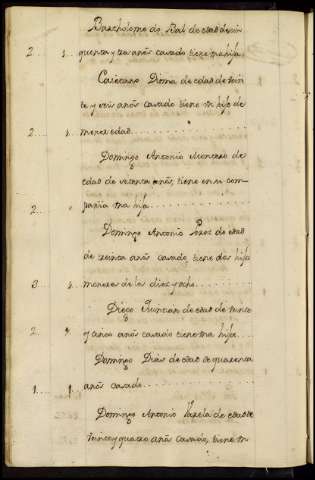 Bartholome do Bal de edad de cin
2 1 quenta y tres anõs casado tiene una hija
Caietano Pioma de edad de vein
te y seis anõs casado tiene un hijo de
2 1. menor edad
Domingo Antonio de
edad de anõs, tiene en su com
2 pañia una hija
Domingo Antonio Perez de edad
de treinta anõs casado, tiene dos hijos
3 1. menores de los diez y ocho
Diego de edad de
2 1. y anõs casado tiene una hija
Domingo Dias de edad de quarenta
1 1. anõs casado
Domingo Antonio Varela de edad de
treinta y quatro anõs casado, tiene un